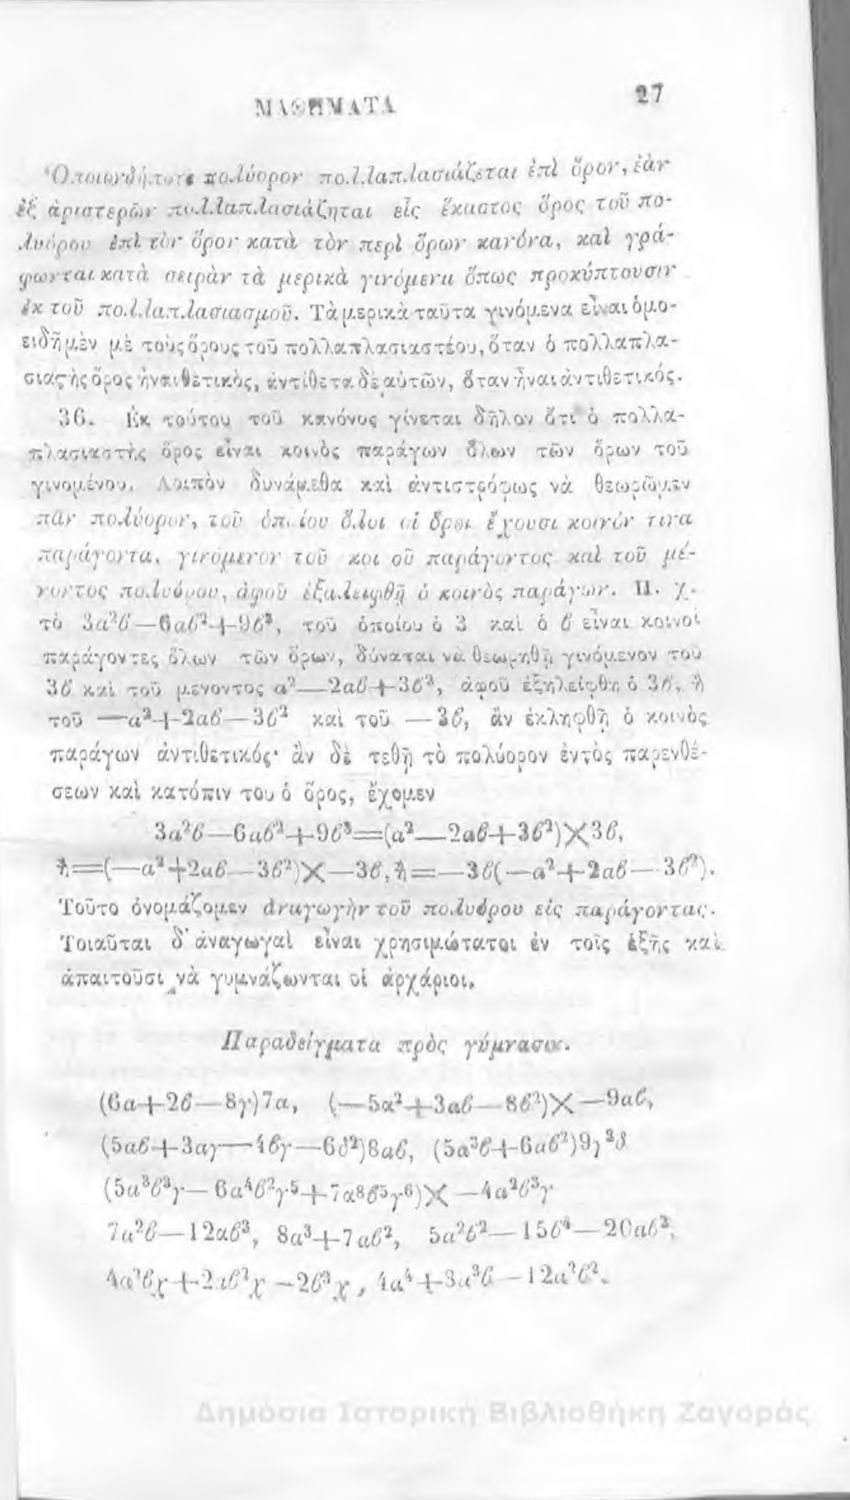 ΜΑΘΗΜΑΤΑ 27
Ὁποιονδήποτε πολύορον πολλαπλασιάζεται ἐπὶ ὅρον, ἐὰν
ἐξ ἀριστερῶν πολλαπλασιάζηται εἷς ἕκαστος ὅρος τοῦ πο-
λυόρου ἐπὶ τὸν ὅρον κατὰ τὸν περὶ ὅρων κανόνα, καὶ γρά-
φωνται κατὰ σειρὰν τὰ μερικὰ γινόμενα ὅπως προκύπτουσιν
ἐκ τοῦ πολλαπλασιασμοῦ. Τὰ μερικὰ ταῦτα γινόμενα εἶναι ὁμο-
ειδῆ μὲν μὲ τοὺς ὅρους τοῦ πολλαπλασιαστέου, ὅταν ὁ πολλαπλα-
σιαςὴς ὅρος ἦναι θετικὸς, ἀντίθετα δὲ αὐτῶν, ὅταν ἦναι ἀντιθετικός.
36. Ἐκ τούτου τοῦ κανόνος γίνεται δῆλον ὅτι ὁ πολλα-
πλασιαστὴς ὅρος εἶναι κοινὸς παράγων ὅλων τῶν ὅρων τοῦ
γινομένου. Λοιπὸν δυνάμεθα καὶ ἀντιστρόφως νὰ θεωρῶμεν
πᾶν πολύορον, τοῦ ὁποίου ὅλοι οἱ ὅροι ἔχουσι κοινόν τινα
παράγοντα, γινόμενον τοῦ κοι οῦ παράγοντος καὶ τοῦ μέ-
νοντος πολυόρου, ἀφοῦ ἐξαλειφθῇ ὁ κοινὸς παράγων. Π. χ.
τὸ 3α²ϐ—6αϐ²+9ϐ³, τοῦ ὁποίου ὁ 3 καὶ ὁ ϐ εἶναι κοινοὶ
παράγοντες ὅλων τῶν ὅρων, δύναται νὰ θεωρηθῇ γινόμενον τοῦ
3ϐ καὶ τοῦ μένοντος α²—2αϐ+3ϐ², ἀφοῦ ἐξηλείφθη ὁ 3ϐ, ἢ
τοῦ —α²+2αϐ—3ϐ² καὶ τοῦ —3ϐ, ἂν ἐκληφθῇ ὁ κοινὸς
παράγων ἀντιθετικός· ἂν δὲ τεθῇ τὸ πολύορον ἐντὸς παρενθέ-
σεων καὶ κατόπιν του ὁ ὅρος, ἔχομεν
3α²ϐ—6αϐ²+9ϐ³=(α²—2αϐ+3ϐ²)×3ϐ,
ἢ=(—α²+2αϐ—3ϐ²)×—3ϐ, ἢ=—3ϐ(—α²+2αϐ—3ϐ²).
Τοῦτο ὀνομάζομεν ἀναγωγὴν τοῦ πολυόρου εἰς παράγοντας.
Τοιαῦται δ' ἀναγωγαὶ εἶναι χρησιμώταται ἐν τοῖς ἑξῆς καὶ
ἀπαιτοῦσι νὰ γυμνάζωνται οἱ ἀρχάριοι.
Παραδείγματα πρὸς γύμνασιν.
(6α+2ϐ—8γ)7α, (—5α²+3αϐ—8ϐ²)×—9αϐ,
(5αϐ+3αγ—4ϐγ—6δ²)8αϐ, (5α³ϐ+6αϐ²)9γ²δ
(5α³ϐ³γ—6α⁴ϐ²γ⁵+7α⁸ϐ⁵γ⁶)×—4α²ϐ³γ
7α²ϐ—12αϐ³, 8α³+7αϐ², 5α²ϐ²—15ϐ⁴—20αϐ²,
4α²ϐχ+2αϐ²χ—2ϐ³χ, 4α⁴+3α³ϐ—12α²ϐ².
Δημόσια Ιστορική Βιβλιοθήκη Ζαγοράς